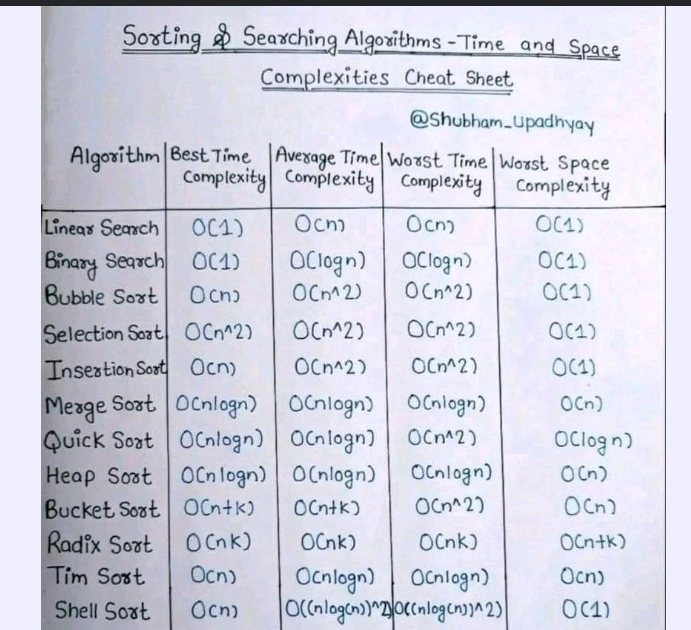 Sorting & Searching Algorithms - Time and Space
Complexities Cheat Sheet
@Shubham_Upadhyay
Algorithm | Best Time Complexity | Average Time Complexity | Worst Time Complexity | Worst Space Complexity
Linear Search | O(1) | O(n) | O(n) | O(1)
Binary Search | O(1) | O(logn) | O(logn) | O(1)
Bubble Sort | O(n) | O(n^2) | O(n^2) | O(1)
Selection Sort | O(n^2) | O(n^2) | O(n^2) | O(1)
Insertion Sort | O(n) | O(n^2) | O(n^2) | O(1)
Merge Sort | O(nlogn) | O(nlogn) | O(nlogn) | O(n)
Quick Sort | O(nlogn) | O(nlogn) | O(n^2) | O(logn)
Heap Sort | O(nlogn) | O(nlogn) | O(nlogn) | O(n)
Bucket Sort | O(n+k) | O(n+k) | O(n^2) | O(n)
Radix Sort | O(nk) | O(nk) | O(nk) | O(n+k)
Tim Sort | O(n) | O(nlogn) | O(nlogn) | O(n)
Shell Sort | O(n) | O((nlog(n))^2) | O((nlog(n))^2) | O(1)